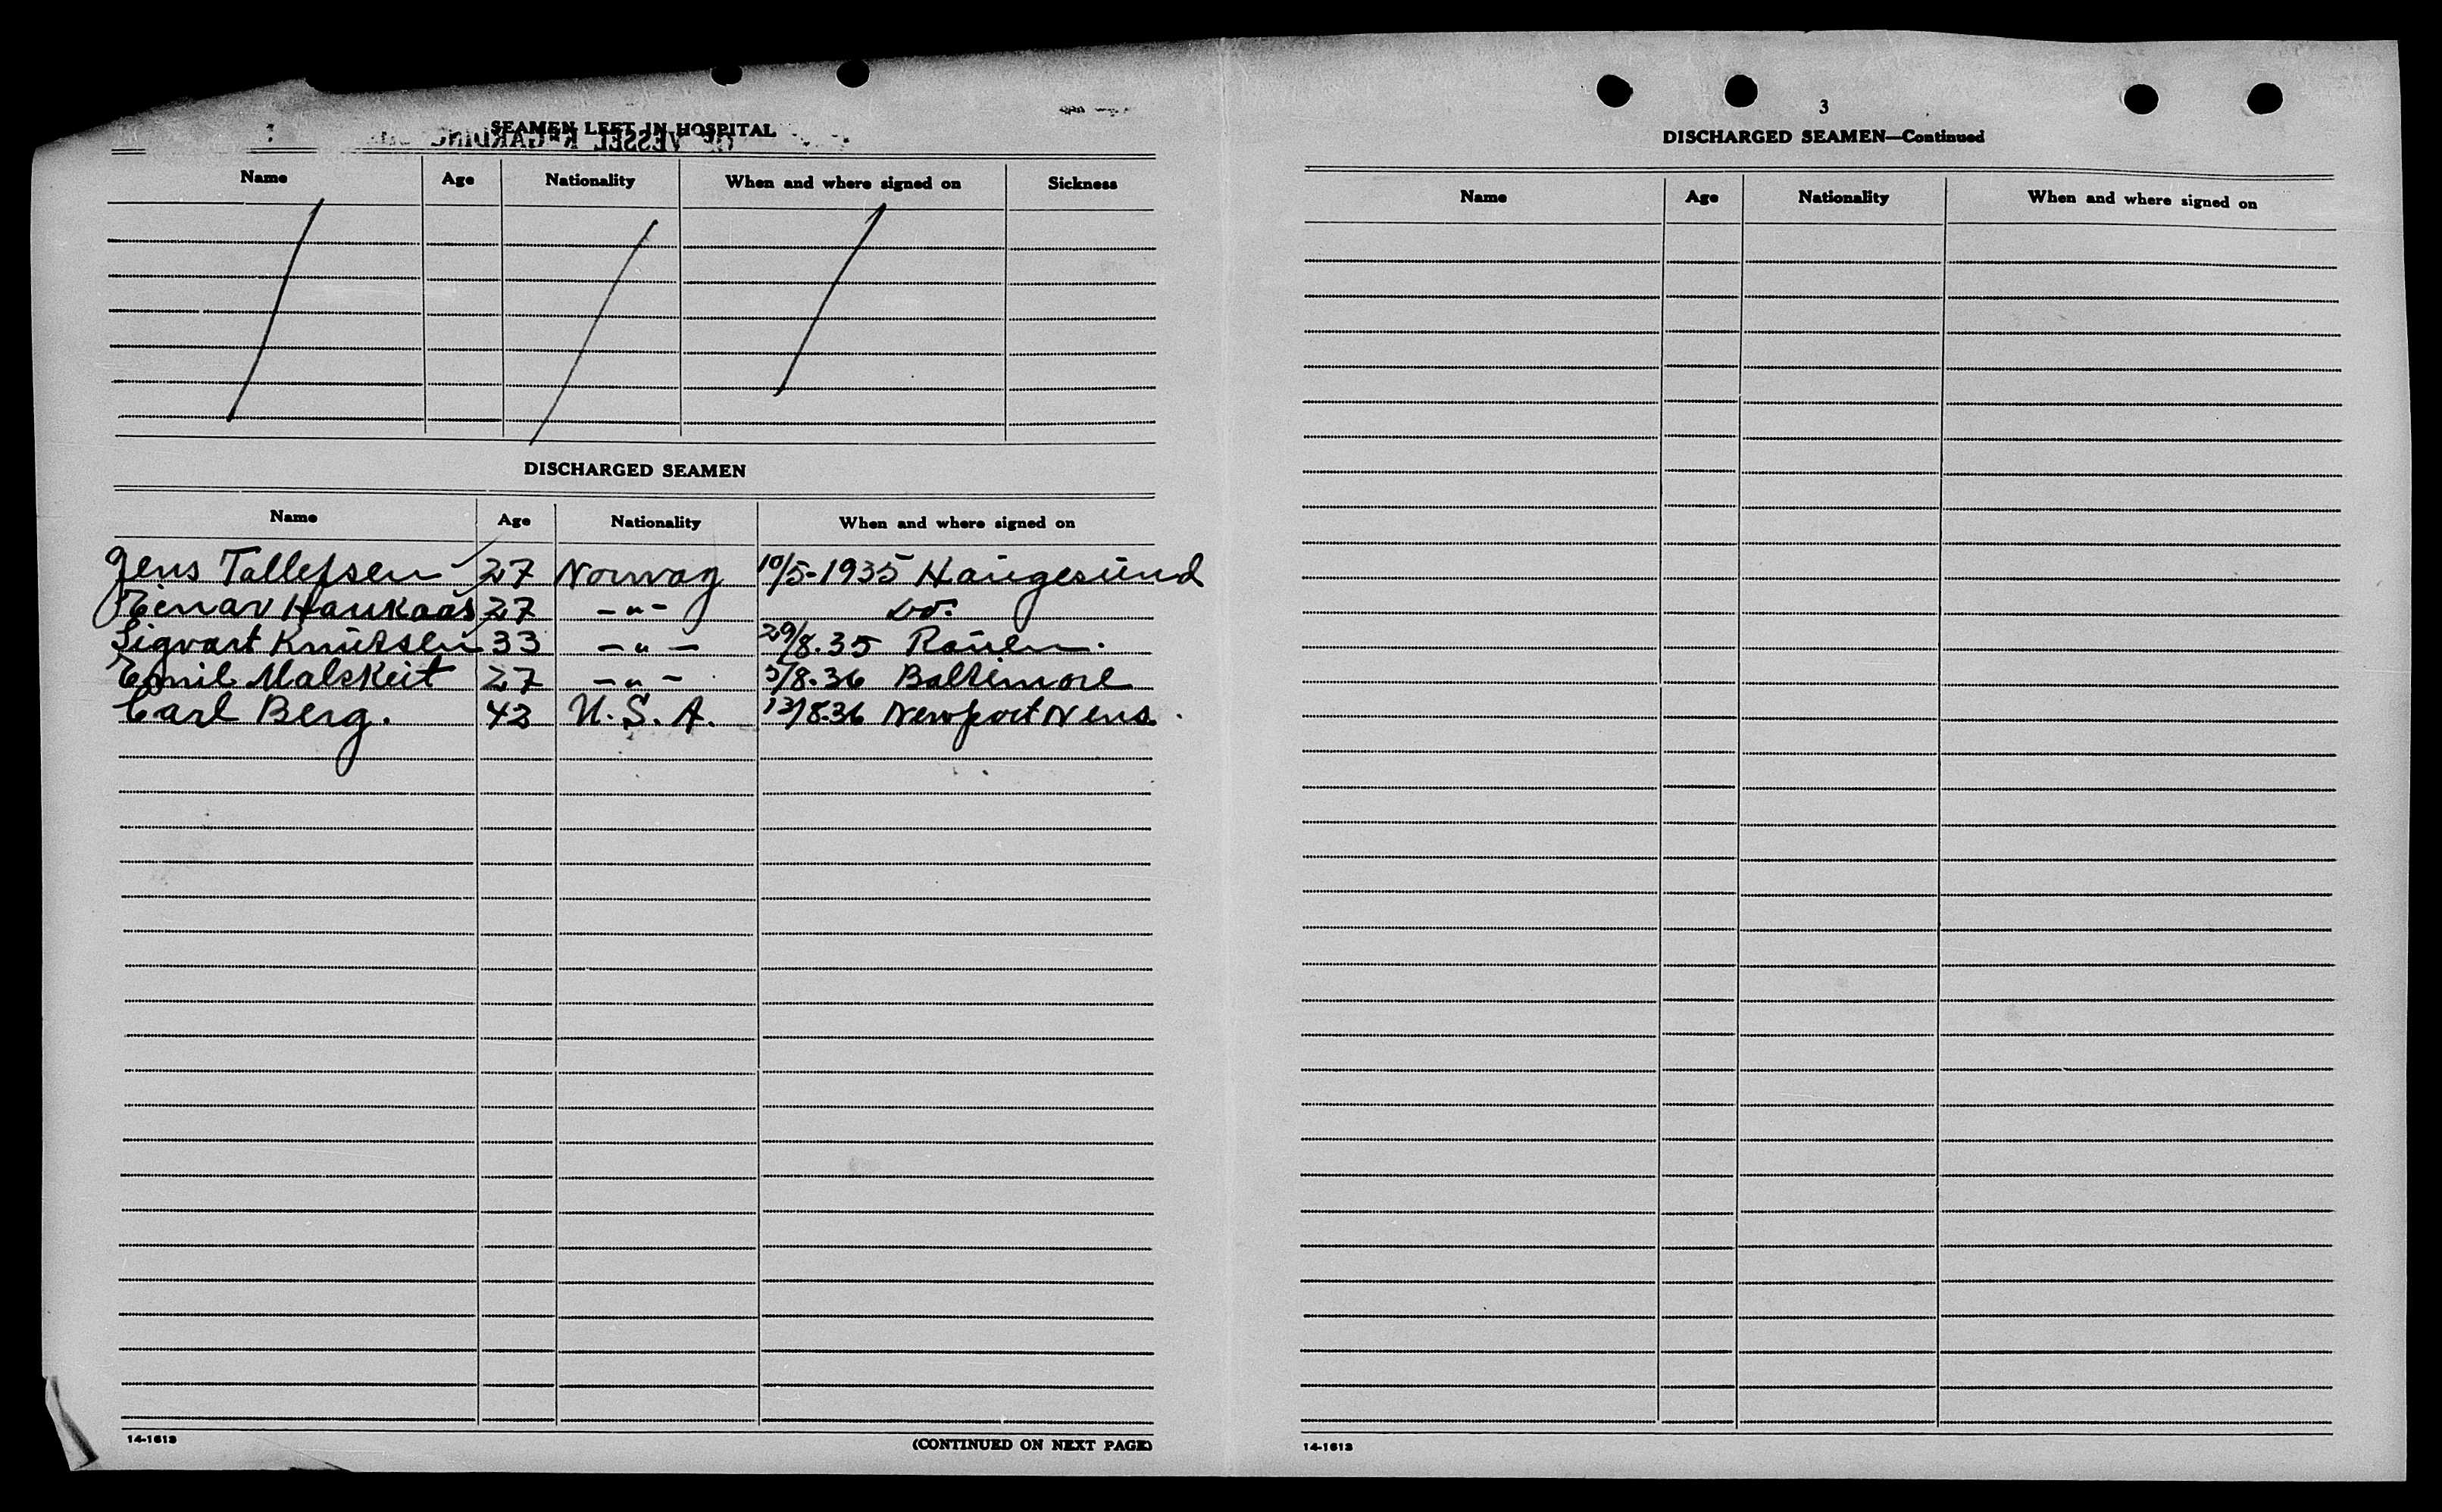 SEAMEN LEFT IN HOSPITAL
OF VESSEL REGARDING
Name Age Nationality When and where signed on Sickness
DISCHARGED SEAMEN
Name Age Nationality When and where signed on
Jens Tallefsen 27 Norway 10/5-1935 Haugesund
Einar Haukaas 27 -"- Do.
Sigvart Knutsen 33 -"- 29/8.35 Rouen.
Emil Malskeit 27 -"- 5/8.36 Baltimore
Carl Berg. 42 U.S.A. 13/8.36 Newport News.
14-1613
(CONTINUED ON NEXT PAGE)
3
DISCHARGED SEAMEN—Continued
Name Age Nationality When and where signed on
14-1613